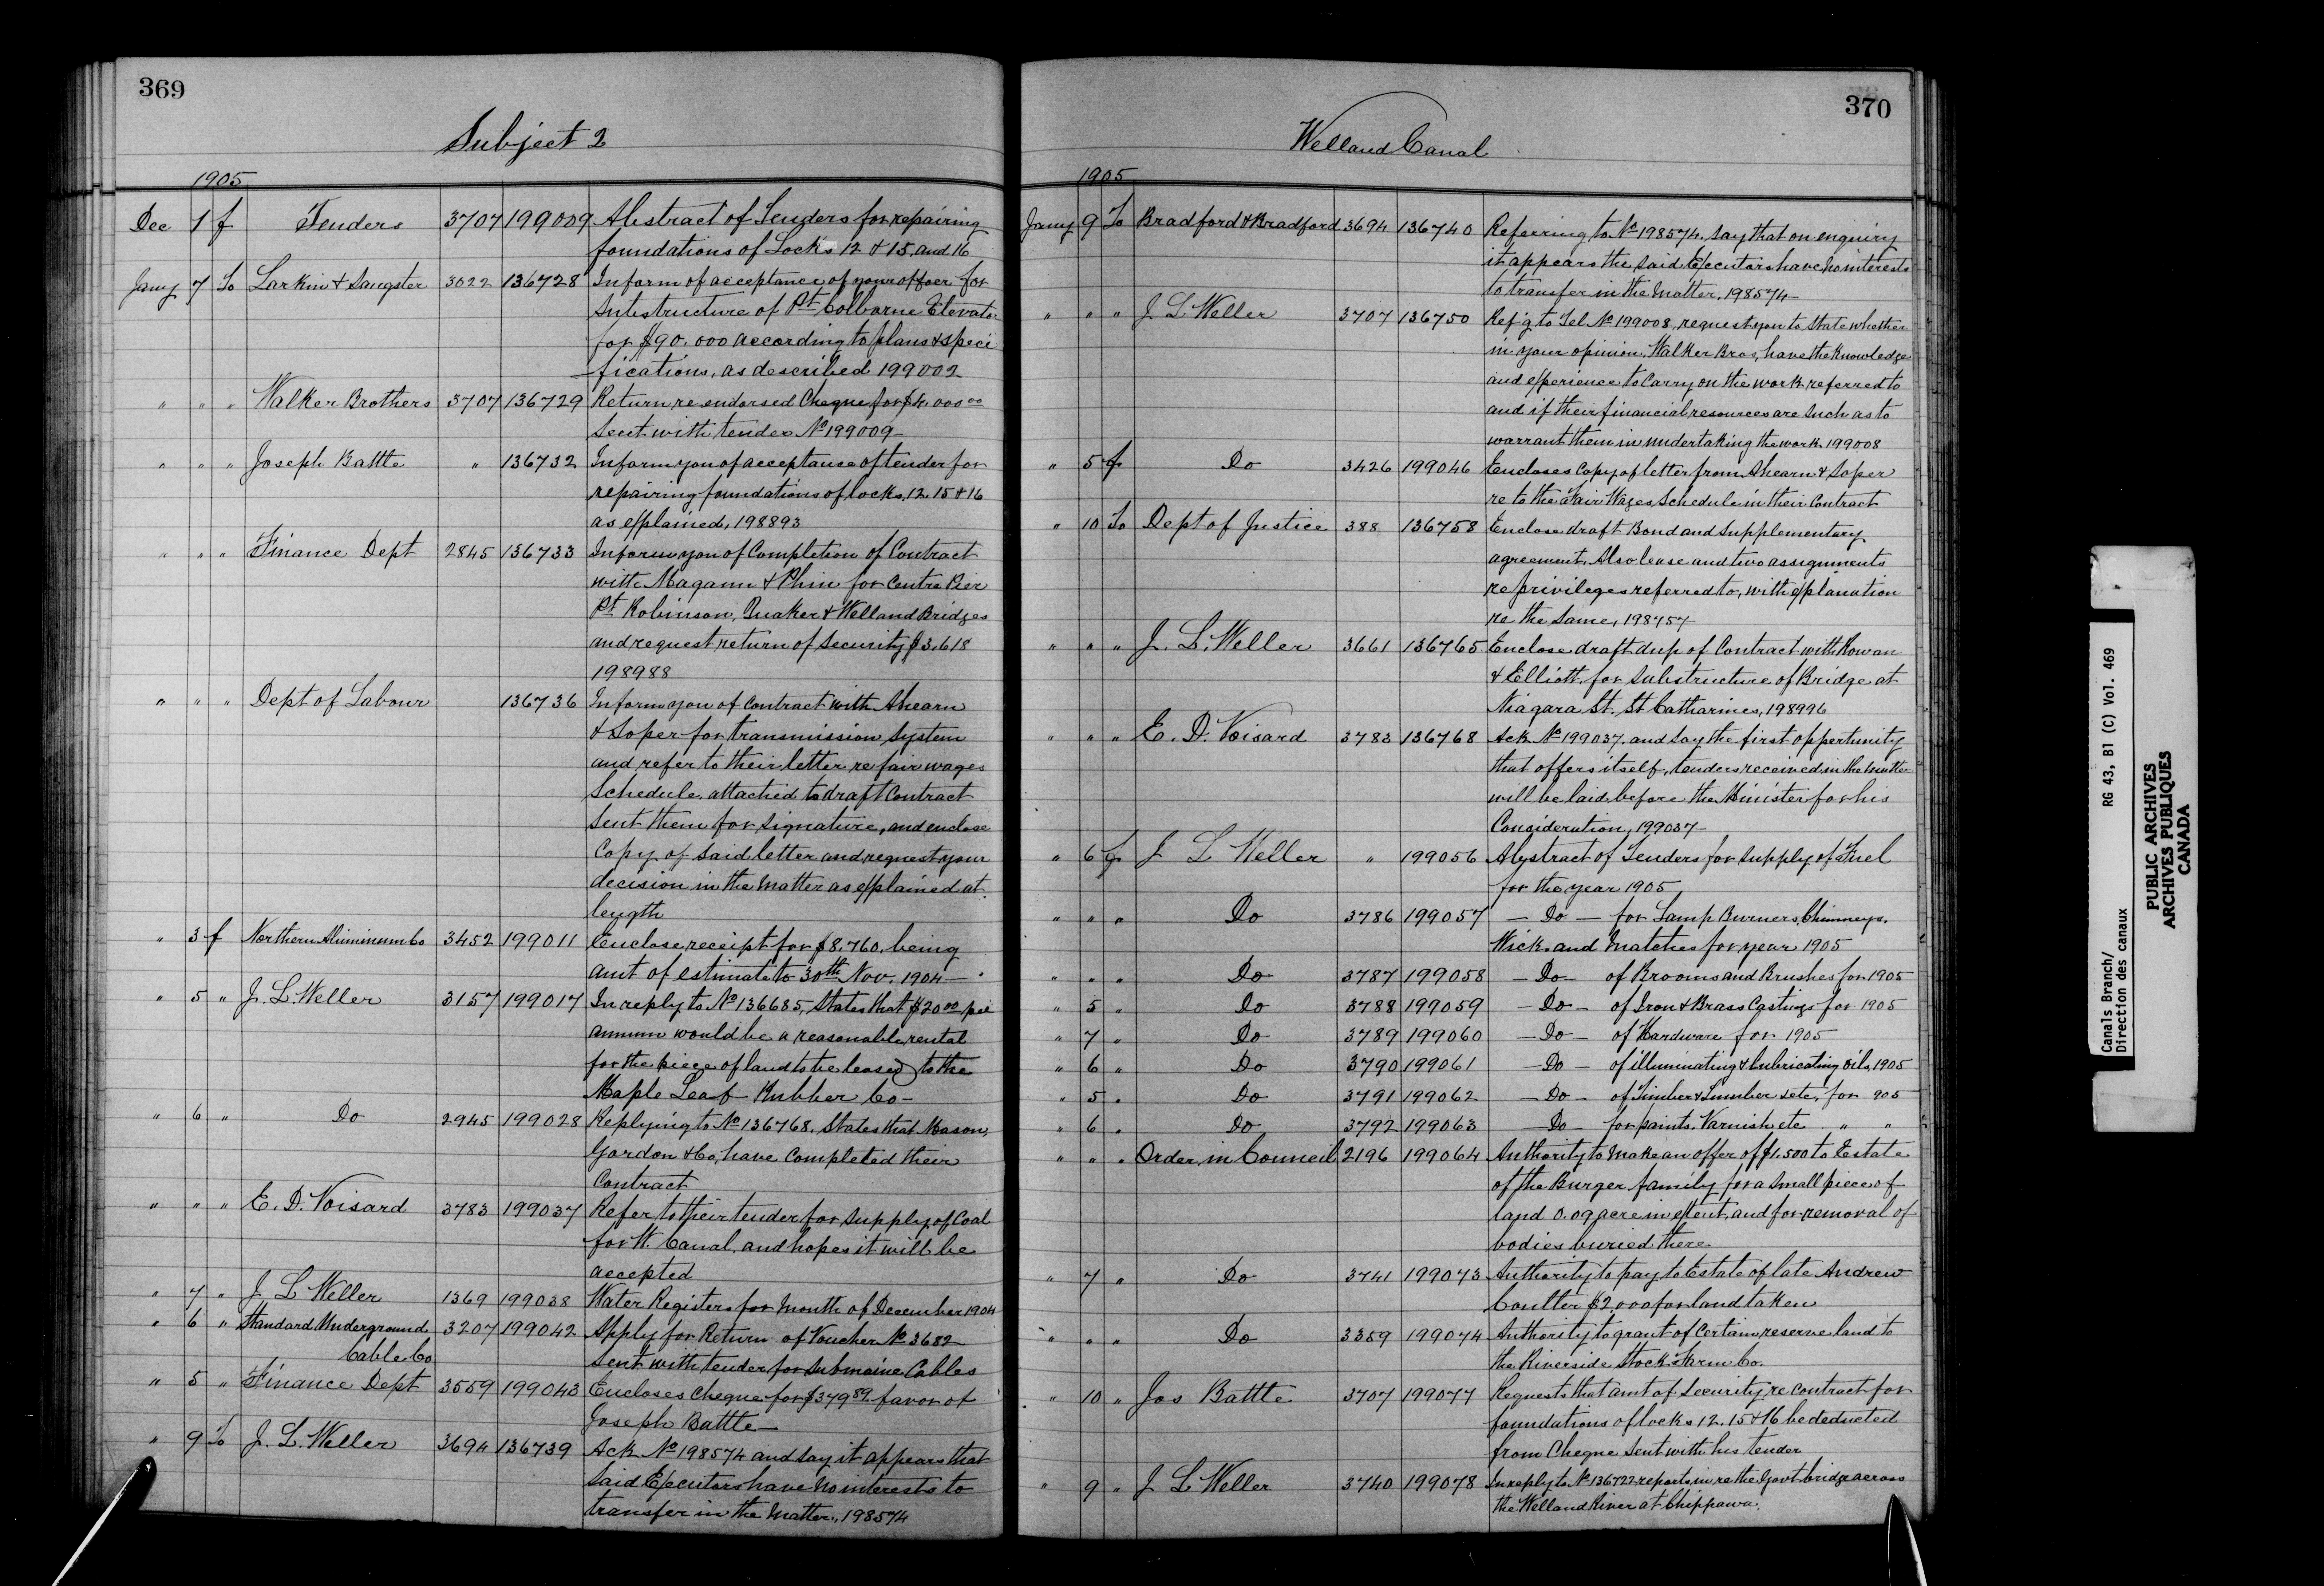 369
Subject 2
1905
Dec 1 f Tenders 3707 199009 Abstract of Tenders for repairing
foundations of Locks 12 & 15, and 16
Jany 7 To Larkin & Sangster 3022 136728 Inform of acceptance of your offer for
Substructure of Pt Colborne Elevator
for $90.000 according to plans & speci
fications, as described 199002
" " " Walker Brothers 3707 136729 Return re endorsed Cheque for $4.000 00
Sent with tender No 199009
" " " Joseph Battle " 136732 Inform you of acceptance of tender for
repairing foundations of locks, 12. 15 & 16
as explained, 198893
" " " Finance Dept 2845 136733 Inform you of Completion of Contract
with Magann & Phin for Centre Pier
Pt Robinson, Quaker & Welland Bridges
and request return of Security $3.618
198988
" " " Dept of Labour 136736 Inform you of Contract with Ahearn
& Soper for transmission System
and refer to their letter re fair wages
Schedule attached to draft Contract
Sent them for Signature, and enclose
Copy of Said letter and request your
decision in the Matter as explained at
length
" 3 f Northern Aluminum Co 3452 199011 Enclose receipt for $8.760. being
amt of estimate to 30th Nov. 1904
" 5 " J. L. Weller 3157 199017 In reply to No 136685, States that $20 00 per
annum would be a reasonable rental
for the piece of land to be leased to the
Maple Leaf Rubber Co
" 6 " Do 2945 199028 Replying to No 136768, States that Mason,
Gordon & Co, have Completed their
Contract
" " " E. D. Voisard 3783 199037 Refer to their tender for Supply of Coal
for W. Canal, and hopes it will be
accepted
" 7 " J L Weller 1369 199038 Water Registers for Month of December 1904
" 6 " Standard Underground 3207 199042 Apply for Return of Voucher No 3682
Cable Co Sent with tender for Submaine Cables
" 5 " Finance Dept 3559 199043 Encloses Cheque for $379 59 favor of
Joseph Battle
" 9 To J. L. Weller 3694 136739 Ack No 198574 and Say it appears that
Said Executors have no interests to
transfer in the Matter, 198574
370
Welland Canal
1905
Jany 9 To Bradford & Bradford 3694 136740 Referring to No 198574, Say that on enquiry
it appears the Said Executors have no interests
to transfer in the Matter, 198574
" " " J L Weller 3707 136750 Ref'g to Tel No 199008, request you to State whether
in your opinion, Walker Bros, have the Knowledge
and experience to Carry on the work referred to
and if their financial resources are Such as to
warrant them in undertaking the work 199008
" 5 f Do 3426 199046 Encloses Copy of letter from Ahearn & Soper
re to the Fair Wages Schedule in their Contract
" 10 To Dept of Justice 388 136758 Enclose draft Bond and Supplementary
agreement, Also lease and two assignments
re privileges referred to, with explanation
re the Same, 198757
" " " J. L. Weller 3661 136765 Enclose draft dup of Contract with Rowan
& Elliott, for Substructure of Bridge at
Niagara St. St Catharines, 198996
" " " E. D. Voisard 3783 136768 Ack No 199037, and Say the first oppertunity
that offers itself, tenders received in the Matter
will be laid before the Minister for his
Consideration, 199037
" 6 f J L Weller " 199056 Abstract of Tenders for Supply of Fuel
for the year 1905
" " " Do 3786 199057 — Do — for Lamp Burners, Chimneys,
Wick and Matches for year 1905
" " " Do 3787 199058 — Do — of Brooms and Brushes for 1905
" 5 " Do 3788 199059 — Do — of Iron & Brass Castings for 1905
" 7 " Do 3789 199060 — Do — of Hardware for 1905
" 6 " Do 3790 199061 — Do — of illuminating & lubricating oils, 1905
" 5 " Do 3791 199062 — Do — of Timber & Lumber &etc, for 905
" 6 " Do 3792 199063 — Do — for paints, Varnish etc " "
" " " Order in Council 2196 199064 Authority to Make an offer of $1.500 to Estate
of the Burger family for a Small piece of
land 0.09 acre in extent, and for removal of
bodies buried there
" 7 " Do 3741 199073 Authority to pay to Estate of late Andrew
Coutter $2.000 for land taken
" " " Do 3359 199074 Authority to grant of Certain reserve land to
the Riverside Stock Farm Co.
" 10 " Jos Battle 3707 199077 Requests that amt of Security re Contract for
foundations of locks 12. 15 & 16 be deducted
from Cheque Sent with his tender
" 9 " J L Weller 3740 199078 In reply to No 136722 reports in re the Govt bridge across
the Welland River at Chippawa.
Canals Branch/ RG 43, B1 (C) Vol. 469
Direction des canaux
PUBLIC ARCHIVES
ARCHIVES PUBLIQUES
CANADA